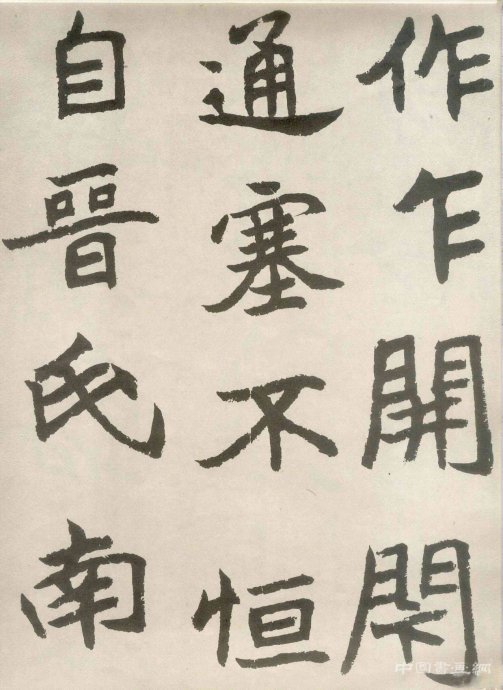 作乍開閇
通塞不恒
自晉氏南
中国書画網